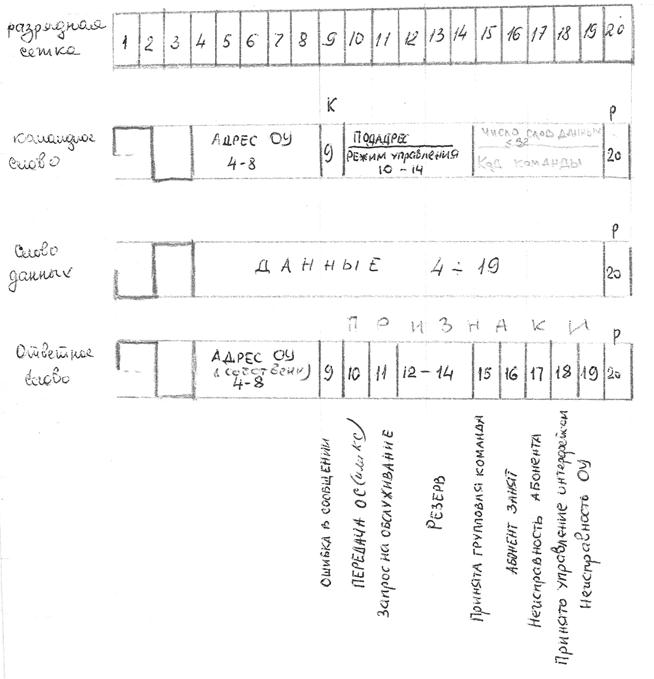 разрядная
сетка
1 2 3 4 5 6 7 8 9 10 11 12 13 14 15 16 17 18 19 20
К
Р
командное
слово
АДРЕС ОУ
4-8
9
ПОДАДРЕС
РЕЖИМ УПРАВЛЕНИЯ
10-14
ЧИСЛО СЛОВ ДАННЫХ
≤32
КОД КОМАНДЫ
20
Р
Слово
данных
ДАННЫЕ 4÷19
20
ПРИЗНАКИ
Р
Ответное
слово
АДРЕС ОУ
4-8
9 10 11 12-14 15 16 17 18 19 20
ОШИБКА В СООБЩЕНИИ
ПЕРЕДАЧА ОС (или КС)
Запрос на ОБСЛУЖИВАНИЕ
РЕЗЕРВ
ПРИНЯТА ГРУППОВАЯ КОМАНДА
АБОНЕНТ ЗАНЯТ
Неисправность АБОНЕНТА
ПРИНЯТО УПРАВЛЕНИЕ ИНТЕРФЕЙСОМ
Неисправность ОУ